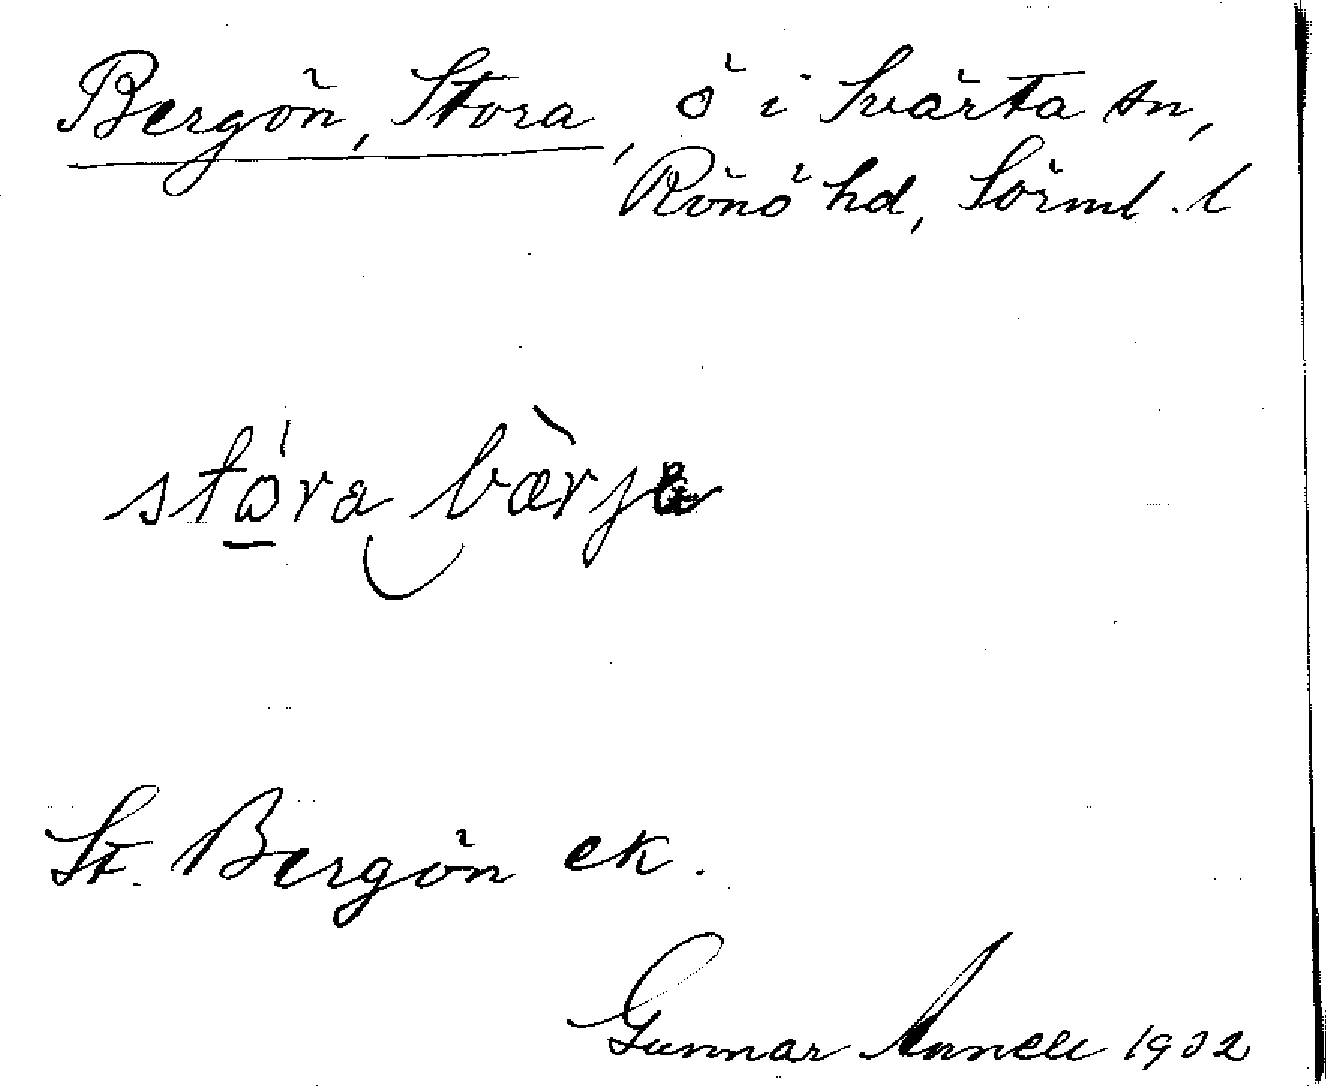 Bergön, Stora, ö i Svärta sn,
Rönö hd, Sörml. l
stora bärj
St. Bergön ek.
Gunnar 1932